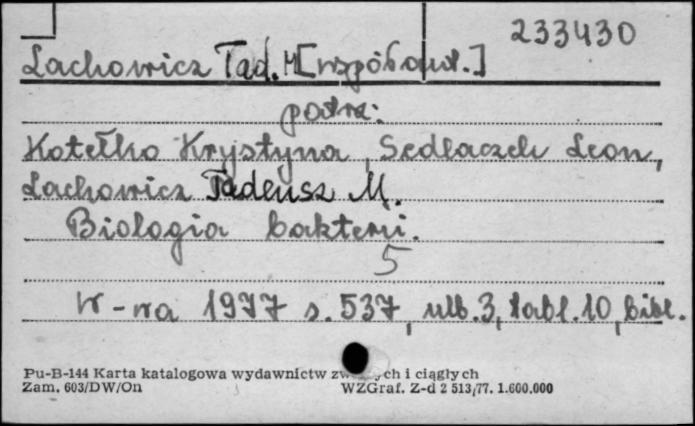 233430
Lachowicz Tad. M [współaut.]
patrz:
Kotełko Krystyna, Sedlaczek Leon,
Lachowicz Tadeusz M.
Biologia bakterii.
5
W-wa 1977 s. 537, nlb. 3, tabl. 10, bibl.
Pu-B-144 Karta katalogowa wydawnictw zw ych i ciągłych
Zam. 603/DW/On WZGraf. Z-d 2 513/77. 1.600.000